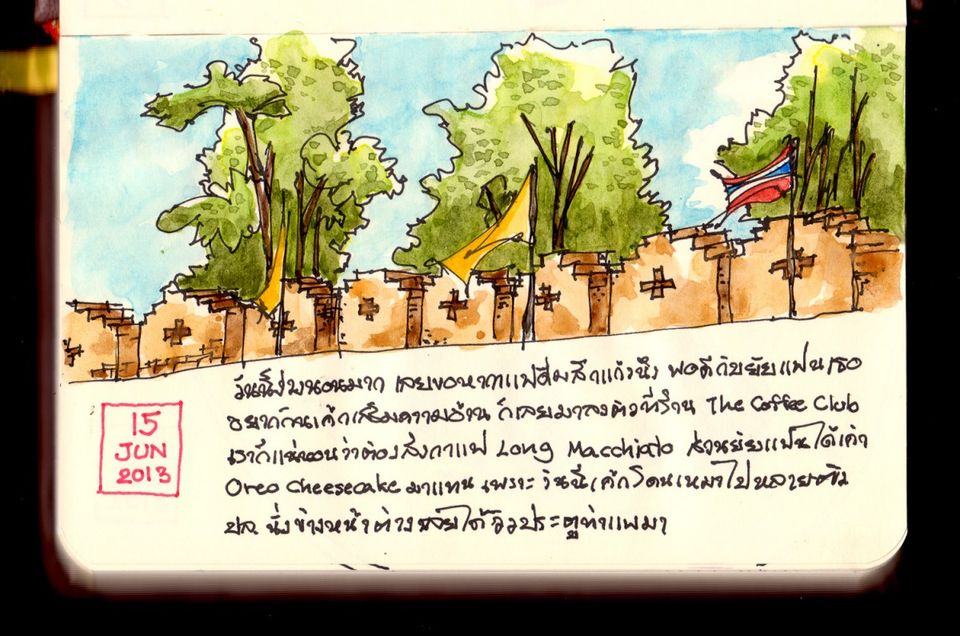 วันนี้ง่วงนอนมาก เลยขอหากาแฟดื่มสักแก้วนึง พอดีกับยัยแฟนเธอ
อยากกินเค้กเสริมความอ้วน ก็เลยมาลงตัวที่ร้าน The Coffee Club
เราก็แน่นอนว่าต้องสั่งกาแฟ Long Macchiato ส่วนยัยแฟนได้เค้ก
Oreo Cheesecake มาแทน เพราะวันนี้เค้กโดนเหมาไปหลายชิ้น
ปล. นั่งข้างหน้าต่าง เลยได้วิวประตูท่าแพมา
15
JUN
2013